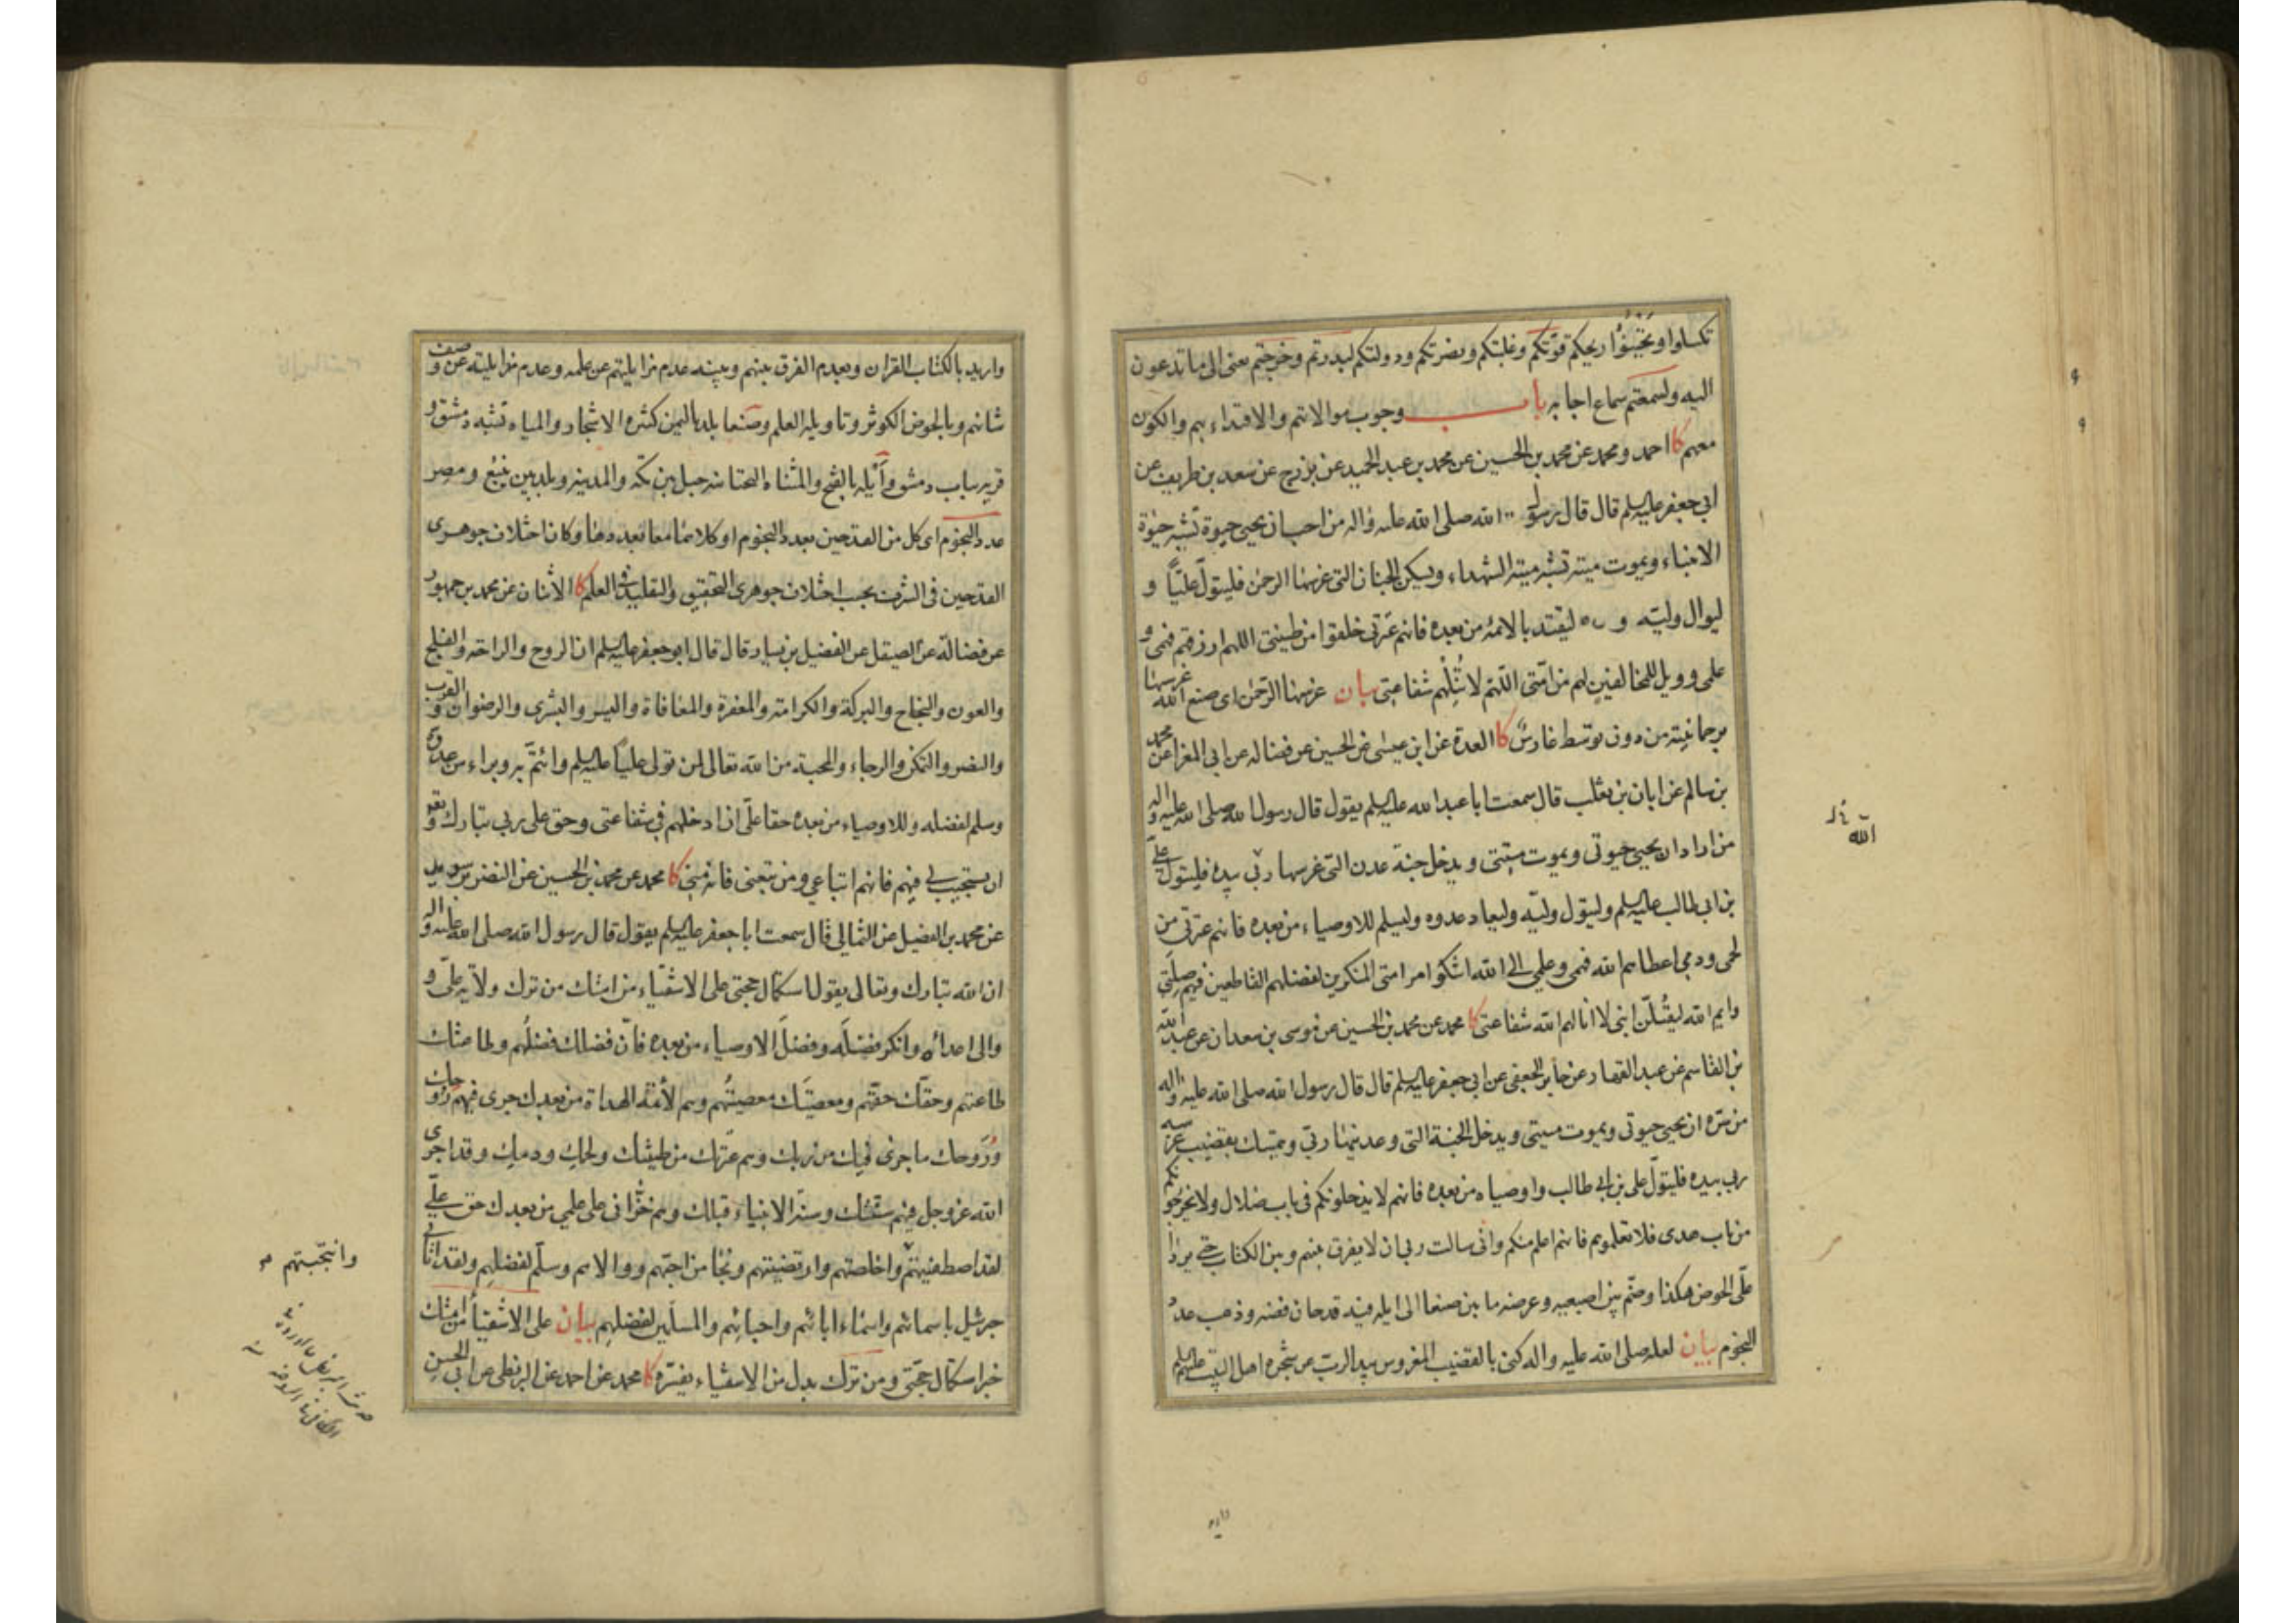 تكسلوا وتخبؤا ريحكم قوتكم وغلبتكم ونصرتكم ودولتكم لبدرتم وخرجتم معنى الى ما تدعون
اليه ولسمعتم سماع اجابه باب وجوب موالاتهم والاقتداء بهم والكون
معهم كا احمد ومحمد عن محمد بن الحسين عن محمد بن عبد الحميد عن بزرج عن سعد بن طريف عن
ابى جعفر عليه السلم قال قال رسول الله صلى الله عليه واله من احب ان يحيى حيوة تشبه حيوة
الانبياء ويموت ميتة تشبه ميتة الشهداء ويسكن الجنان التى غرسها الرحمن فليتول عليّا و
ليوال وليّه وليقتد بالائمة من بعده فانهم عترتى خلقوا من طينتى اللهم ارزقهم فهمى و
علمى وويل للمخالفين لهم من امّتى اللّهم لا تُنِلْهم شفاعتى بيان غرسها الرّحمن اى صنع الله غرسها
برحمانيّته من دون توسّط غارسٍ كا العدة عن ابن عيسى عن الحسين عن فضاله عن ابى المغرا عن محمد
بن سالم عن ابان بن تغلب قال سمعت ابا عبد الله عليه السلم يقول قال رسول الله صلى الله عليه واله
من اراد ان يحيى حيوتى ويموت ميتتى ويدخل جنة عدن التى غرسها ربّى بيده فليتول علىّ
بن ابى طالب عليه السلم وليتول وليّه وليعاد عدوه وليسلم للاوصياء من بعده فانهم عترتى من
لحمى ودمى اعطاهم الله فهمى وعلمى الى الله اشكو امر امتى المنكرين لفضلهم القاطعين فيهم صِلَتى
وايم الله ليقتُلنّ ابنى لا انالهم الله شفاعتى كا محمد عن محمد بن الحسين عن موسى بن سعدان عن عبد الله
بن القاسم عن عبد القهار عن جابر الجعفى عن ابى جعفر عليه السلم قال قال رسول الله صلى الله عليه واله
من سرّه ان يحيى حيوتى ويموت ميتتى ويدخل الجنة التى وعدنيها ربّى ويتمسّك بقضيب غرسه
ربى بيده فليتولّ على بن ابى طالب واوصياه من بعده فانهم لا يدخلونكم فى باب ضلال ولا يخرجونكم
من باب هدى فلا تعلموهم فانهم اعلم منكم وانى سالت ربى ان لا يفرق بينهم وبين الكتاب حتى يردا
علىّ الحوض هكذا وضمّ بين اصبعيه وعرضه ما بين صنعا الى ايله فيه قدحان فضه وذهب عدد
النجوم بيان لعله صلى الله عليه واله كنى بالقضيب المغروس بيد الربّ عن شجره اهل البيت عليهم السلم
الله
واريد بالكتاب القران وبعدم الفرق بينهم وبينه عدم مزايلتهم عن علمه وعدم مزايليته عن وصف
شانهم وبالحوض الكوثر وتاويله العلم وصنعا بلد باليمن كثيره الاشجار والمياه تشبه دمشق و
قريه بباب دمشق وأيله بالفتح والمثناه التحتانيه جبل بين مكه والمدينه وبلد بين ينبع ومصر
عدد النجوم اى كل من القدحين بعدد النجوم او كلاهما معا بعددها وكان اختلاف جوهرى
القدحين فى الشرف بحسب اختلاف جوهرى التحقيق والتقليد فى العلم كا الاثنان عن محمد بن جمهور
عن فضالة عن الصيقل عن الفضيل بن يسار قال قال ابو جعفر عليه السلم ان الروح والراحة والفلج
والعون والنجاح والبركة والكرامة والمغفرة والمعافاة واليسر والبشرى والرضوان والقرب
والنصر والتمكن والرجاء والمحبة من الله تعالى لمن تولى عليّا عليه السلم وائتمّ به وبراء من عدوّه
وسلم لفضله وللاوصياء من بعده حقا علىّ ان ادخلهم فى شفاعتى وحق على ربى تبارك وتعو
ان يستجيب لى فيهم فانهم اتباعى ومن تبعنى فانه منى كا محمد عن محمد بن الحسين عن النضر بن سويد
عن محمد بن الفضيل عن الثمالى قال سمعت ابا جعفر عليه السلم يقول قال رسول الله صلى الله عليه واله
ان الله تبارك وتعالى يقول استكمال حجتى على الاشقياء من امتك من ترك ولاية علىّ و
والى اعداءه وانكر فضلَه وفضلَ الاوصياء من بعده فانّ فضلك فضلُهم وطاعتك
طاعتهم وحقّك حقّهم ومعصيَتك معصيتُهم وهم لأئمّة الهداة من بعدك جرى فيهم روحك
ورُوحك ما جرى فيك من ربك وهم عترتك من طينتك ولحمك ودمك وقد اجرى
الله عز وجل فيهم سنّتك وسنّة الانبياء قبلك وهم خزّانى على علمى من بعدك حق علىّ
لقد اصطفيتهم واخلصتهم وارتضيتهم ونجا من احبّهم ووالاهم وسلّم لفضلهم ولقد اتانى
جبرئيل باسمائهم واسماء ابائهم واحبائهم والمسلّمين لفضلهم بيان على الاشقياء من امتك
خبر استكمال حجّتى ومن ترك بدل من الاشقياء يفسّره كا محمد عن احمد عن البزنطى عن ابى الحسن
وانتجبتهم